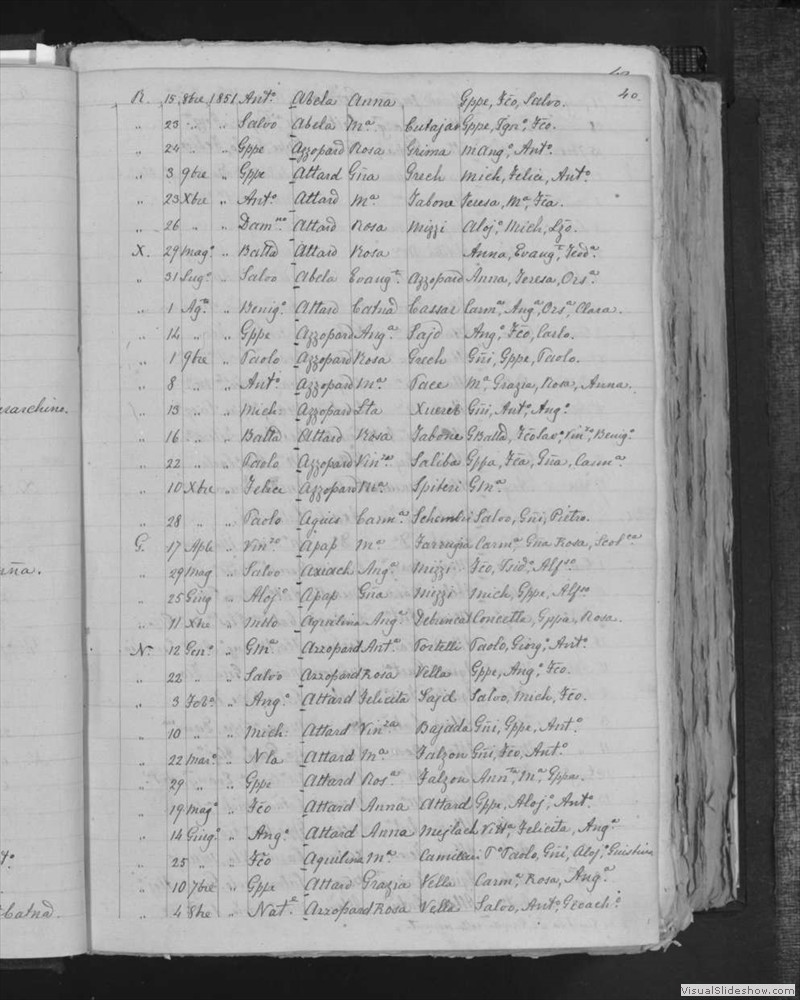 40.
R. 15 8bre 1851 Ant.o Abela Anna Gppe, Fco, Salvo.
" 23 " " Salvo Abela M.a Cutajar Gppe, Ign.o, Fco.
" 24 " " Gppe Azzopard Rosa Grima M Ang.o, Ant.o
" 3 9bre " Gppe Attard Gña Grech Mich, Felice, Ant.o
" 23 Xbre " Ant.o Attard M.a Tabone Teresa, M.a, Fca.
" 26 " " Dam.no Attard Rosa Mizzi Aloj.o, Mich, Lzo.
X. 29 Mag.o " Batta Attard Rosa Anna, Evang.ta, Teod.a
" 31 Lug.o " Salvo Abela Evang.ta Azzopard Anna, Teresa, Ors.a
" 1 Ag.to " Benig.o Attard Catnd Cassar Carm.a, Ang.a, Ors.a, Clara.
" 14 " " Gppe Azzopard Ang.a Sajd Ang.o, Fco, Carlo.
" 1 9bre " Paolo Azzopard Rosa Grech Gñi, Gppe, Paolo.
" 8 " " Ant.o Azzopard M.a Pace M.a Grazia, Rosa, Anna.
" 13 " " Mich: Azzopard Lta Xuereb Gñi, Ant.o, Ang.o
" 16 " " Batta Attard Rosa Tabone GBatta, Vin.zo, Benig.o
" 22 " " Paolo Azzopard Vin.za Saliba Gppa, Fca, Gña, Carm.a
" 10 Xbre " Felice Azzopard M.a Spiteri Gm.a
" 28 " " Paolo Agius Carm.a Schembri Salvo, Gñi, Pietro.
G. 17 Aple " Vin.zo Apap M.a Farrugia Carm.a, Gña Rosa, Scol.ca
" 29 Mag " Salvo Axiach Ang.a Mizzi Fco, Isid.o, Alf.so
" 25 Giug " Aloj.o Apap Gña Mizzi Mich, Gppe, Alf.so
" 11 Xbre " Aquilina Ang.a Debuncat Concetta, Gppa, Rosa.
N. 12 Gen.o " Gm.a Azzopard Ant.a Portelli Paolo, Giorg.o, Ant.o
" 22 " " Salvo Azzopard Rosa Vella Gppe, Ang.o, Fco.
" 3 Feb.o " Ang.o Attard Felicita Sajd Salvo, Mich, Fco.
" 10 " " Mich: Attard Vin.za Bajada Gñi, Gppe, Ant.o
" 22 Mar.o " Nla Attard M.a Falzon Gñi, Fco, Ant.o
" 29 " " Gppe Attard Ros.a Falzon Ann.ta, M.a, Gppa.
" 19 Mag.o " Fco Attard Anna Attard Gppe, Aloj.o, Ant.o
" 14 Giug.o " Ang.o Attard Anna Mejlach Vitt.a, Felicita, Ang.a
" 25 " " Fco Aquilina M.a Camilleri Paolo, Gñi, Aloj.o, Giustina
" 10 7bre " Gppe Attard Grazia Vella Carm.a, Rosa, Ang.a
" 4 8bre " Nat.e Azzopard Rosa Vella Salvo, Ant.o, Gioach.o
VisualSlideshow.com